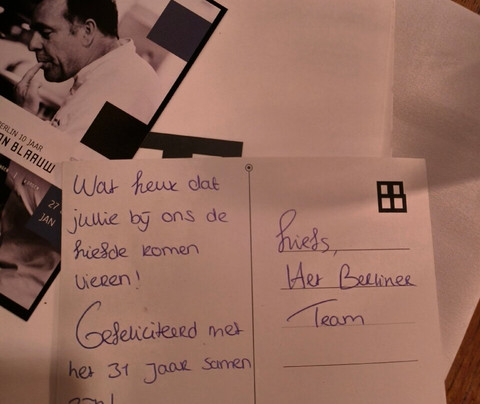 BERLIN 10 JAAR
ON BLAAUW
27
JAN
Wat leuk dat
jullie bij ons de
liefde komen
vieren!
Gefeliciteerd met
het 31 jaar samen
zijn!
Liefs,
Het Berliner
Team